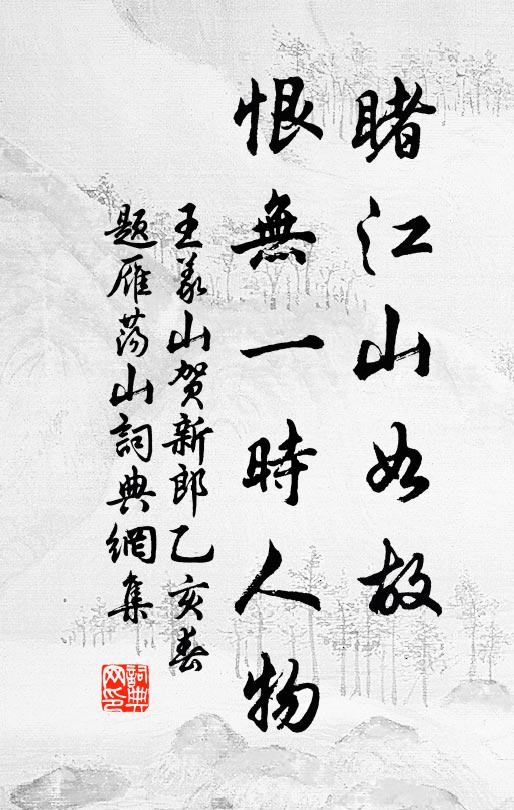 睹江山如故
恨無一時人物
王義山賀新郎乙亥春
題雁蕩山詞典網集
詞典网印